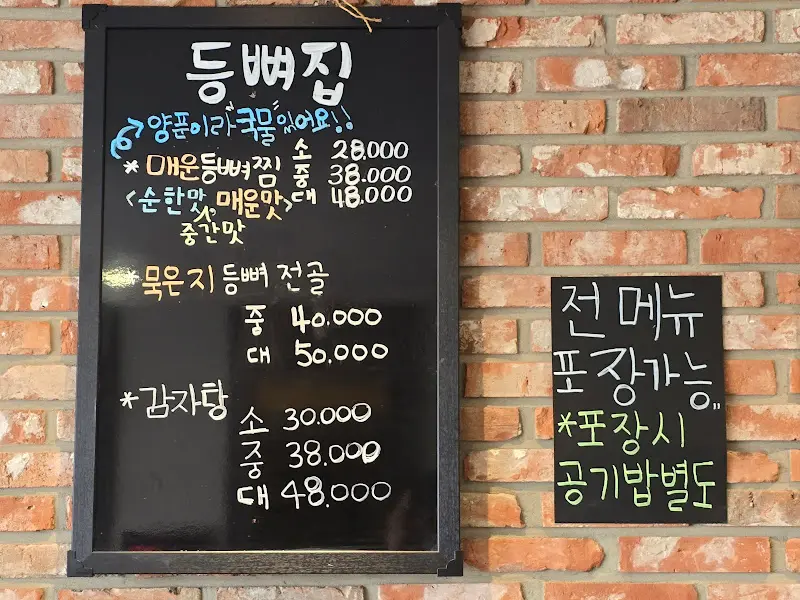 등뼈집
양푼이라 국물 있어요!!
*매운등뼈찜 소 28.000
중 38.000
<순한맛, 매운맛> 대 48.000
중간맛
*묵은지 등뼈 전골
중 40.000
대 50.000
*감자탕
소 30.000
중 38.000
대 48.000
전메뉴
포장가능,,
*포장시
공기밥별도